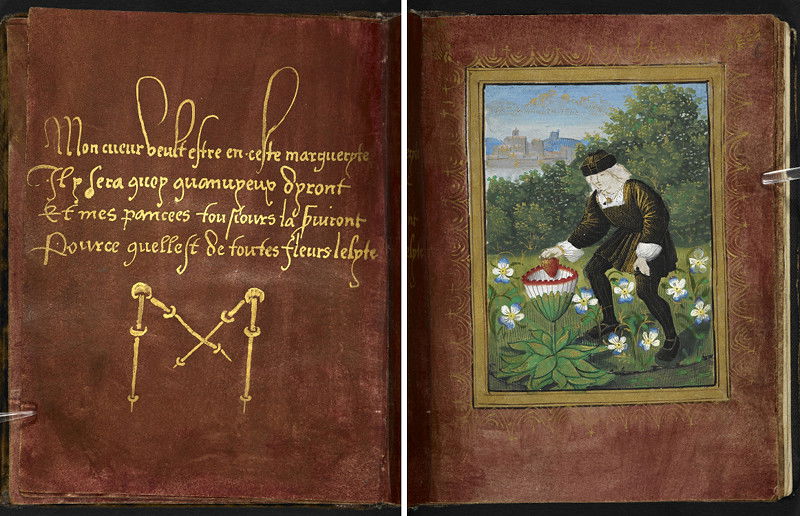 Mon cueur veult estre en ceste margueryte
Il y sera quoy quanvyeux dyront
Et mes pancees tousiours la suivront
Pource quellest de toutes fleurs leslyte
M